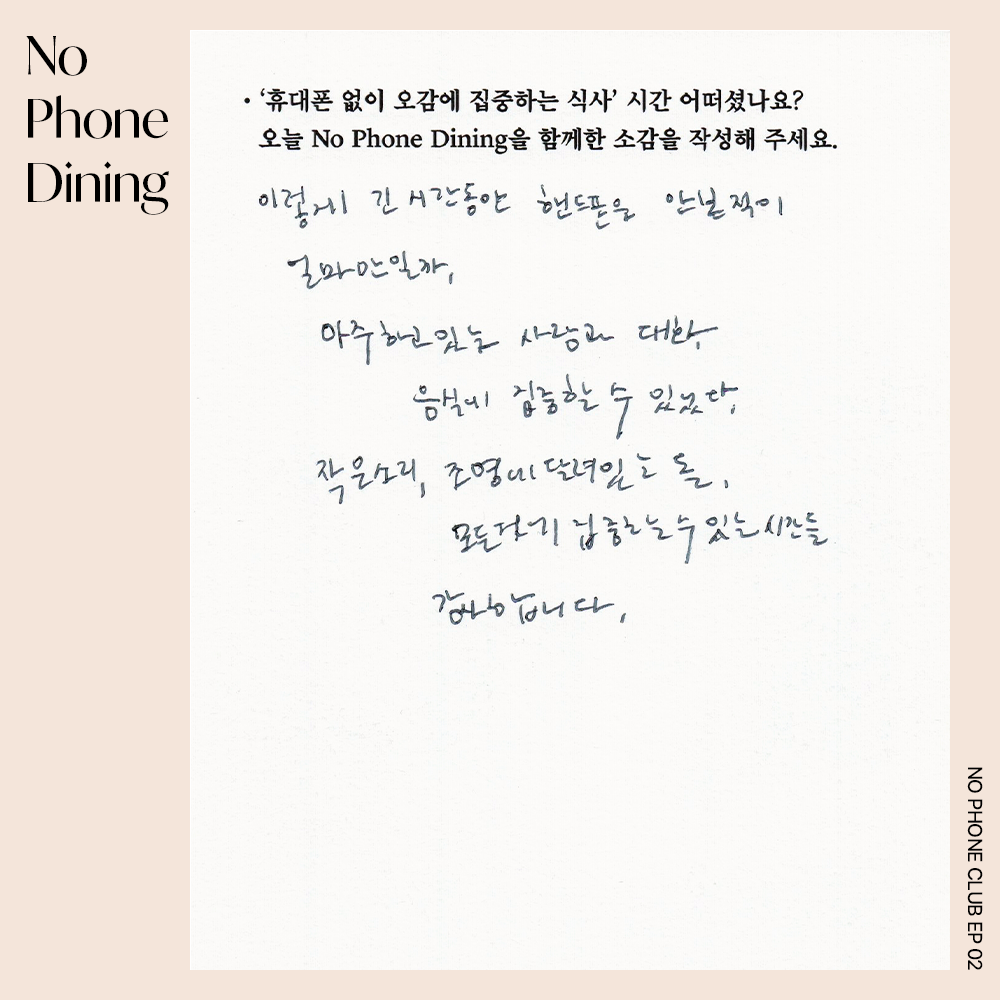 No
Phone
Dining
• ‘휴대폰 없이 오감에 집중하는 식사’ 시간 어떠셨나요?
오늘 No Phone Dining을 함께한 소감을 작성해 주세요.
이렇게 긴 시간동안 핸드폰을 안본적이
얼마만일까,
마주하고있는 사람과 대화,
음식에 집중할 수 있었다,
작은소리, 조명에 달려있는 돌,
모든것에 집중하는 수 있는 시간들
감사합니다,
NO PHONE CLUB EP 02